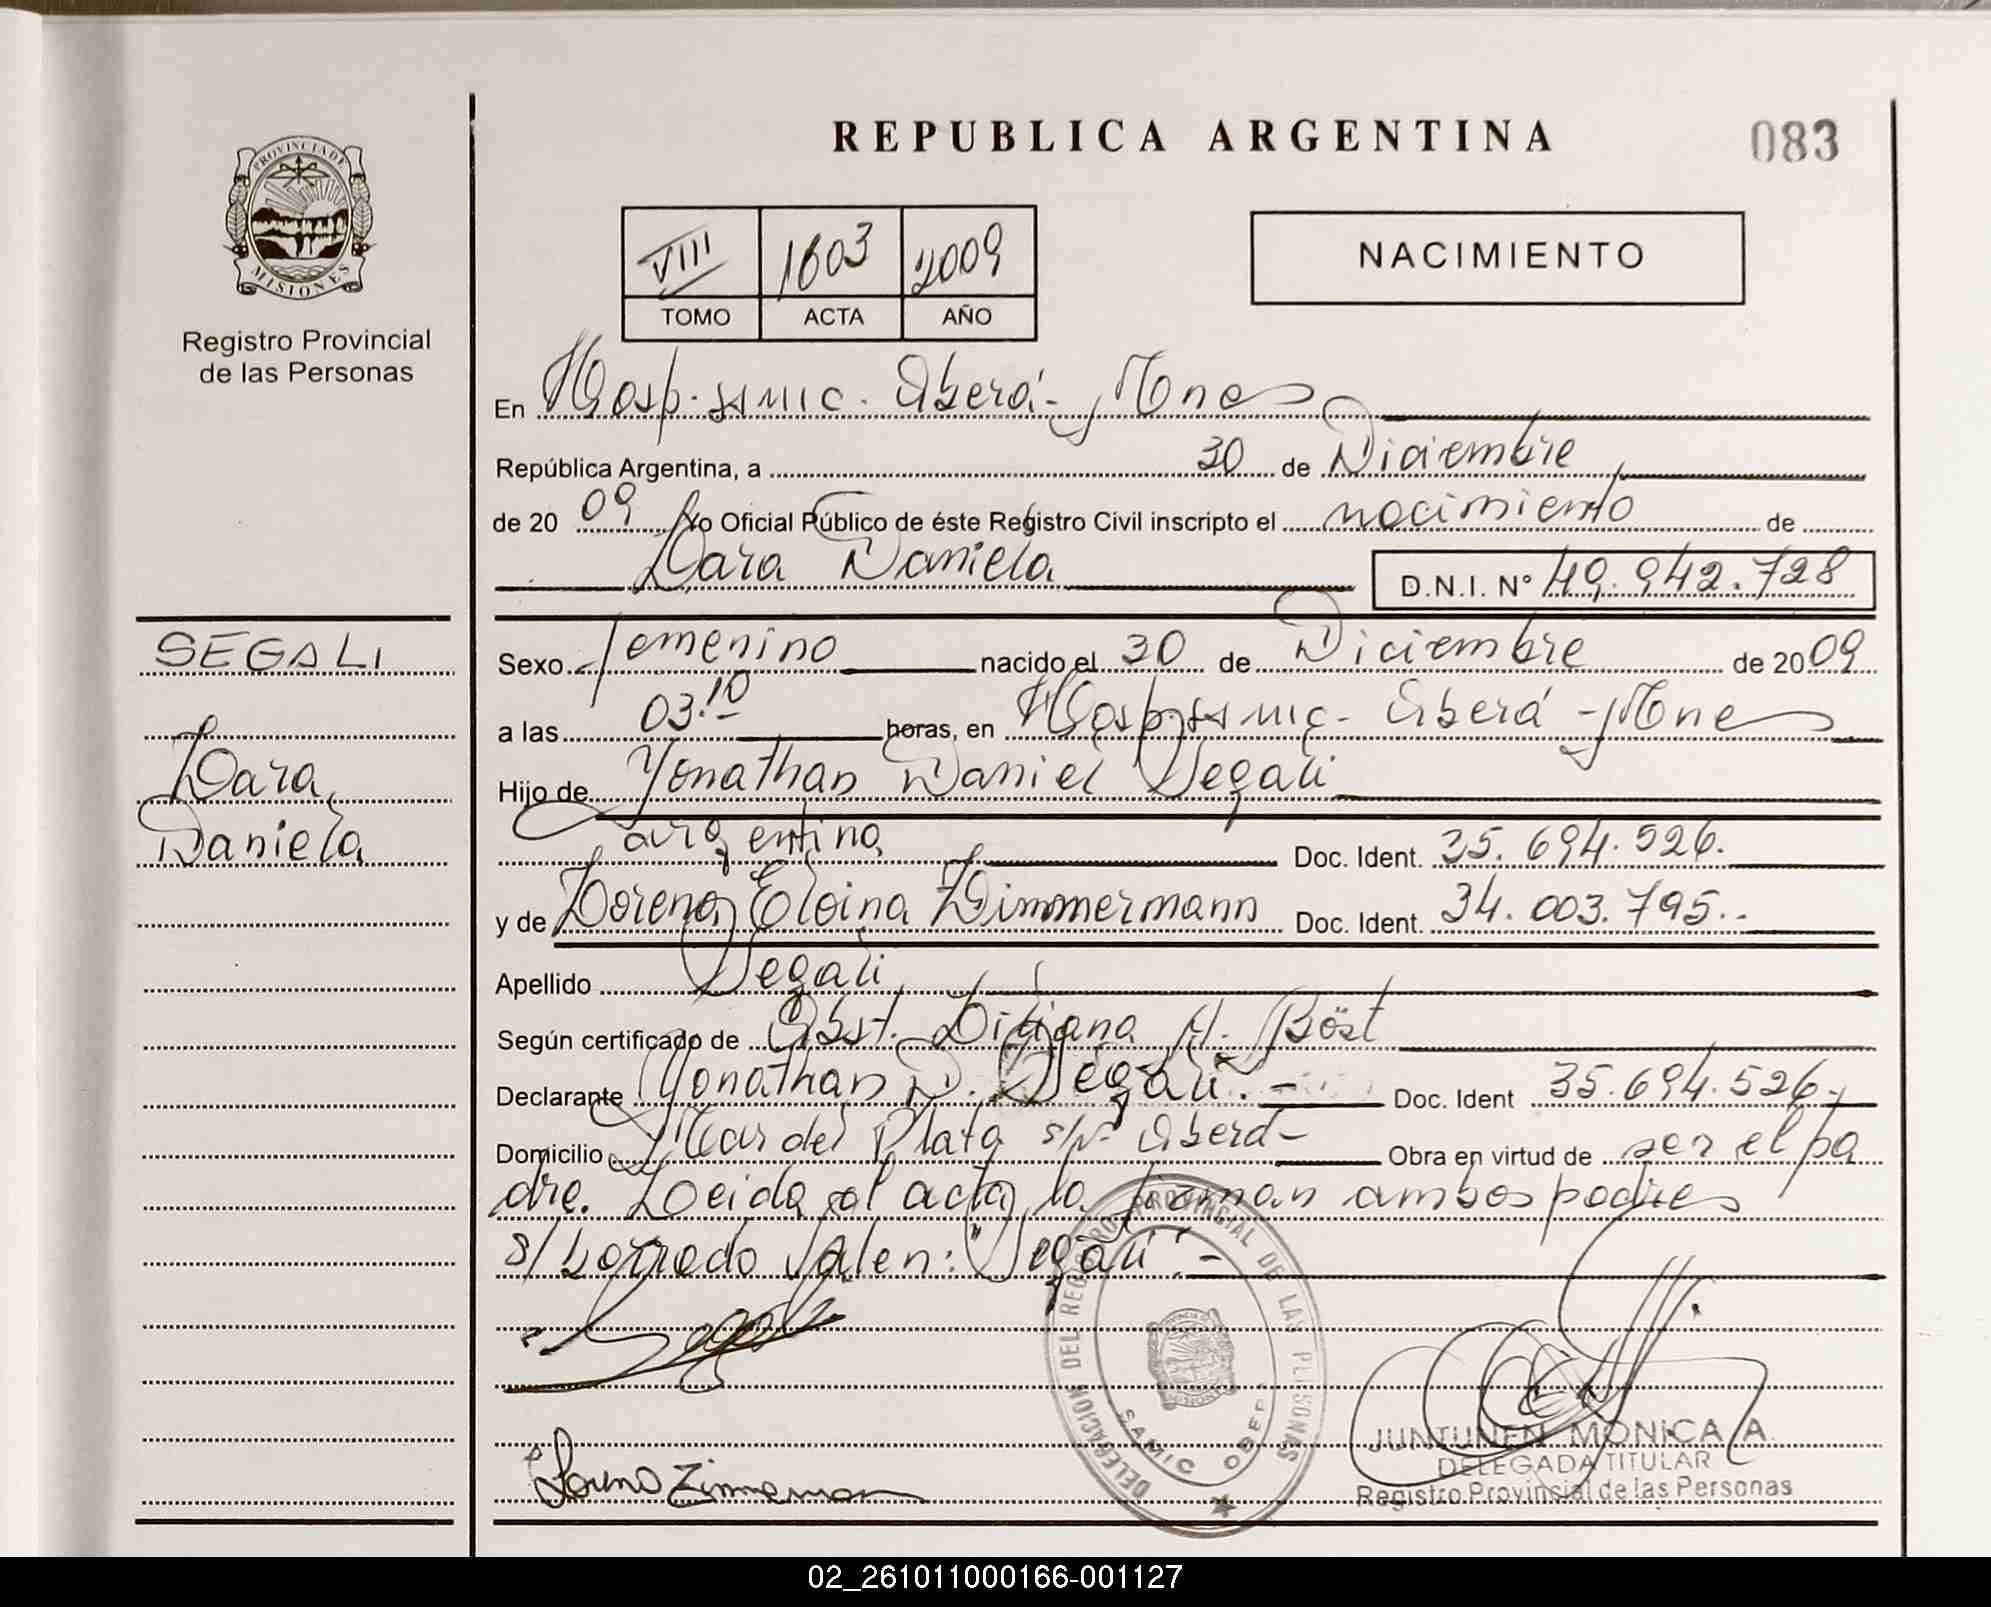 REPUBLICA ARGENTINA
083
PROVINCIA DE
MISIONES
Registro Provincial
de las Personas
VIII 1603 2009
TOMO ACTA AÑO
NACIMIENTO
En Hosp. SAMIC. Oberá - Mnes
República Argentina, a 30 de Diciembre
de 2009 Yo Oficial Público de éste Registro Civil inscripto el nacimiento de
Lara Daniela D.N.I. Nº 49.942.728
SEGALI
Lara
Daniela
Sexo femenino nacido el 30 de Diciembre de 2009
a las 03.10 horas, en Hosp. SAMIC - Oberá - Mnes
Hijo de Yonathan Daniel Segali
argentino Doc. Ident. 35.694.526.
y de Lorena Eloina Zimmermann Doc. Ident. 34.003.795..
Apellido Segali
Según certificado de Obst. Liliana A. Böst
Declarante Yonathan D. Segali. - Doc. Ident 35.694.526-
Domicilio Mar del Plata s/Nº Oberá - Obra en virtud de ser el pa
dre. Leida el acta la firman ambos padres
s/borrado Valen: "Segali". -
Lorena Zimmerman
DELEGACION DEL REGISTRO PROVINCIAL DE LAS PERSONAS
SAMIC OBERA
JUNTUNEN MONICA A.
DELEGADA TITULAR
Registro Provincial de las Personas
02_261011000166-001127